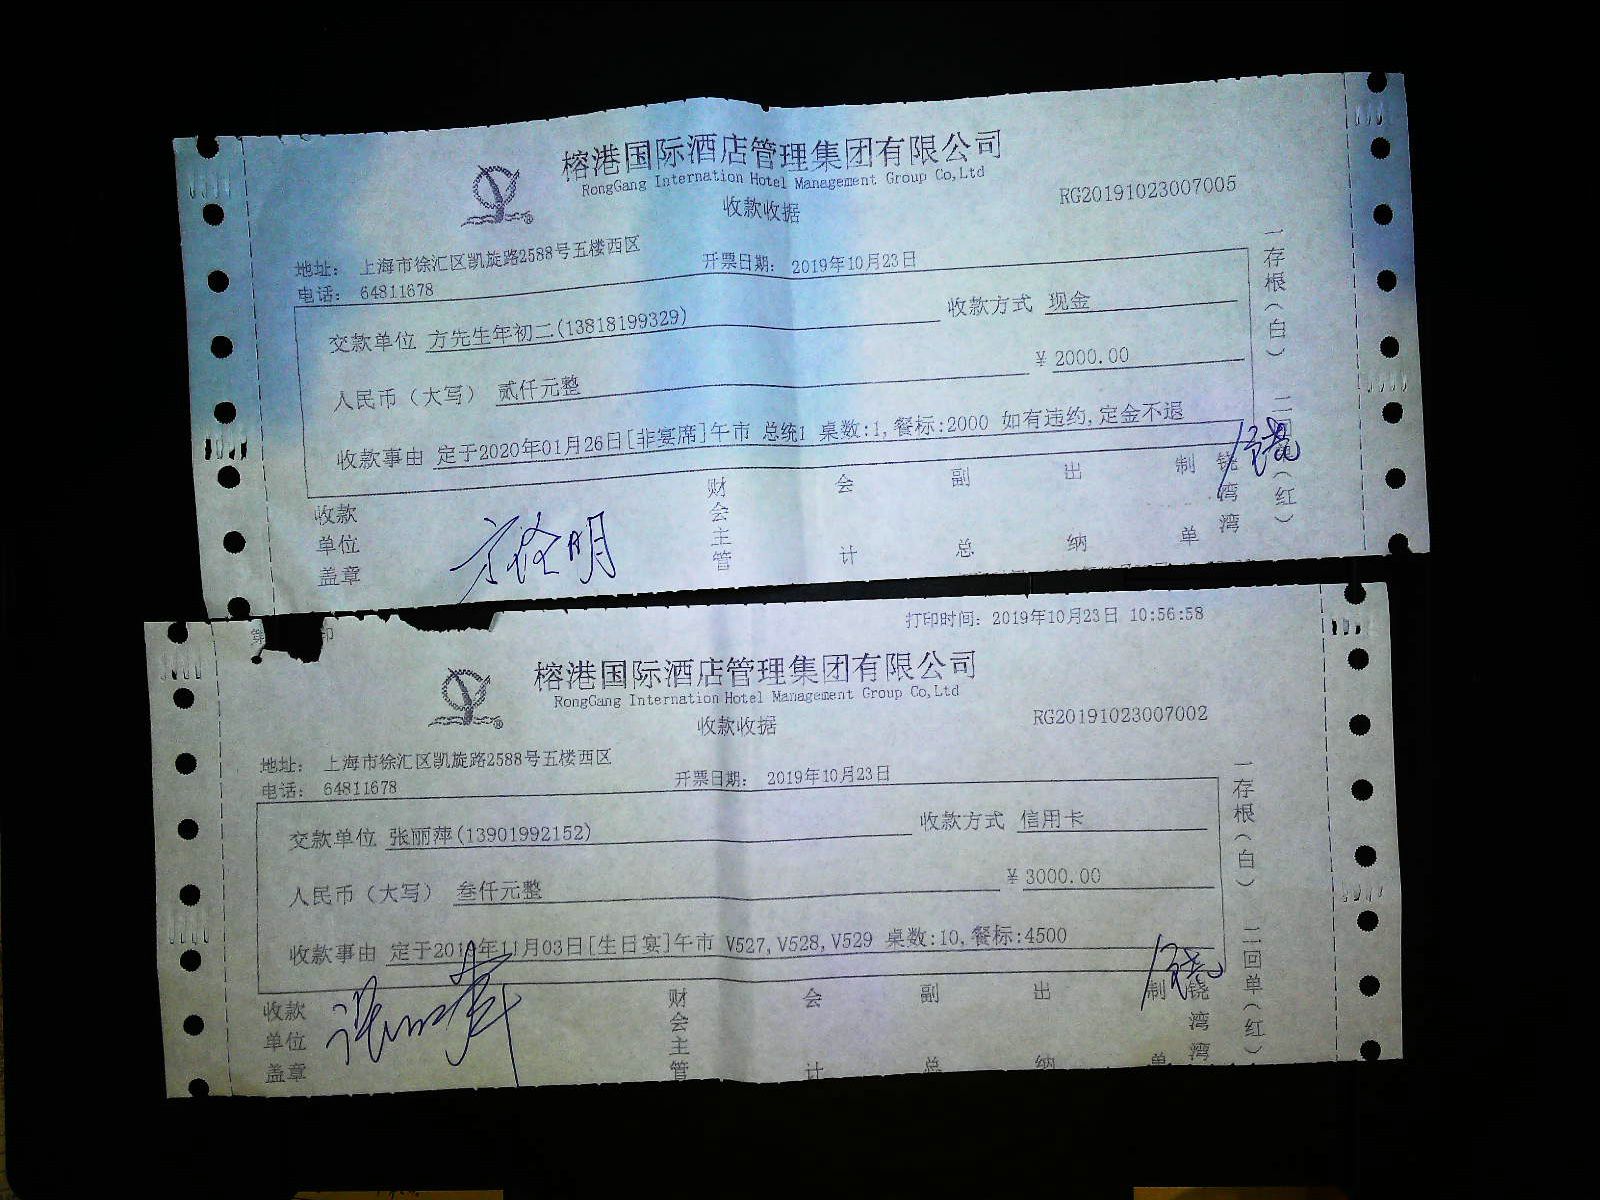 榕港国际酒店管理集团有限公司
RongGang Internation Hotel Management Group Co,Ltd
收款收据
RG20191023007005
地址： 上海市徐汇区凯旋路2588号五楼西区
开票日期： 2019年10月23日
电话： 64811678
交款单位 方先生年初二(13818199329)
收款方式 现金
人民币（大写） 贰仟元整
¥ 2000.00
收款事由 定于2020年01月26日[非宴席]午市 总统1 桌数:1,餐标:2000 如有违约,定金不退
收款单位盖章
财会主管
会计
副总
出纳
制单
铙湾湾
一存根（白） 二回单（红）
打印时间：2019年10月23日 10:56:58
榕港国际酒店管理集团有限公司
RongGang Internation Hotel Management Group Co,Ltd
收款收据
RG20191023007002
地址： 上海市徐汇区凯旋路2588号五楼西区
开票日期： 2019年10月23日
电话： 64811678
交款单位 张丽萍(13901992152)
收款方式 信用卡
人民币（大写） 叁仟元整
¥ 3000.00
收款事由 定于2019年11月03日[生日宴]午市 V527,V528,V529 桌数:10,餐标:4500
收款单位盖章
财会主管
会计
副总
出纳
制单
铙湾湾
一存根（白） 二回单（红）